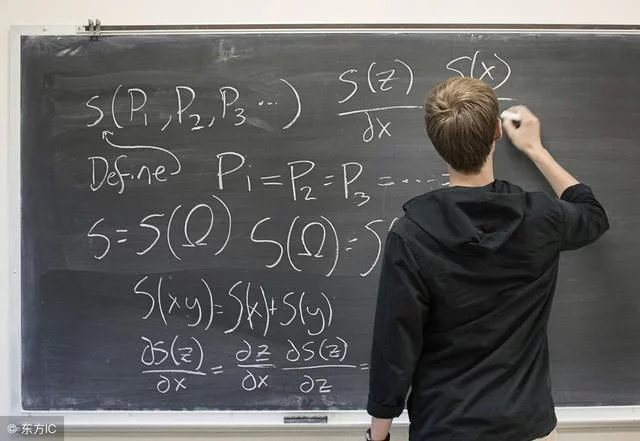 S(P₁, P₂, P₃ ...)
S(z)/∂x S(x)
Define
Pᵢ = P₂ = P₃ = ....
S = S(Ω) S(Ω) = S
S(xy) = S(x) + S(y)
∂S(z)/∂x = ∂z/∂x ∂S(z)/∂z =
© 东方IC